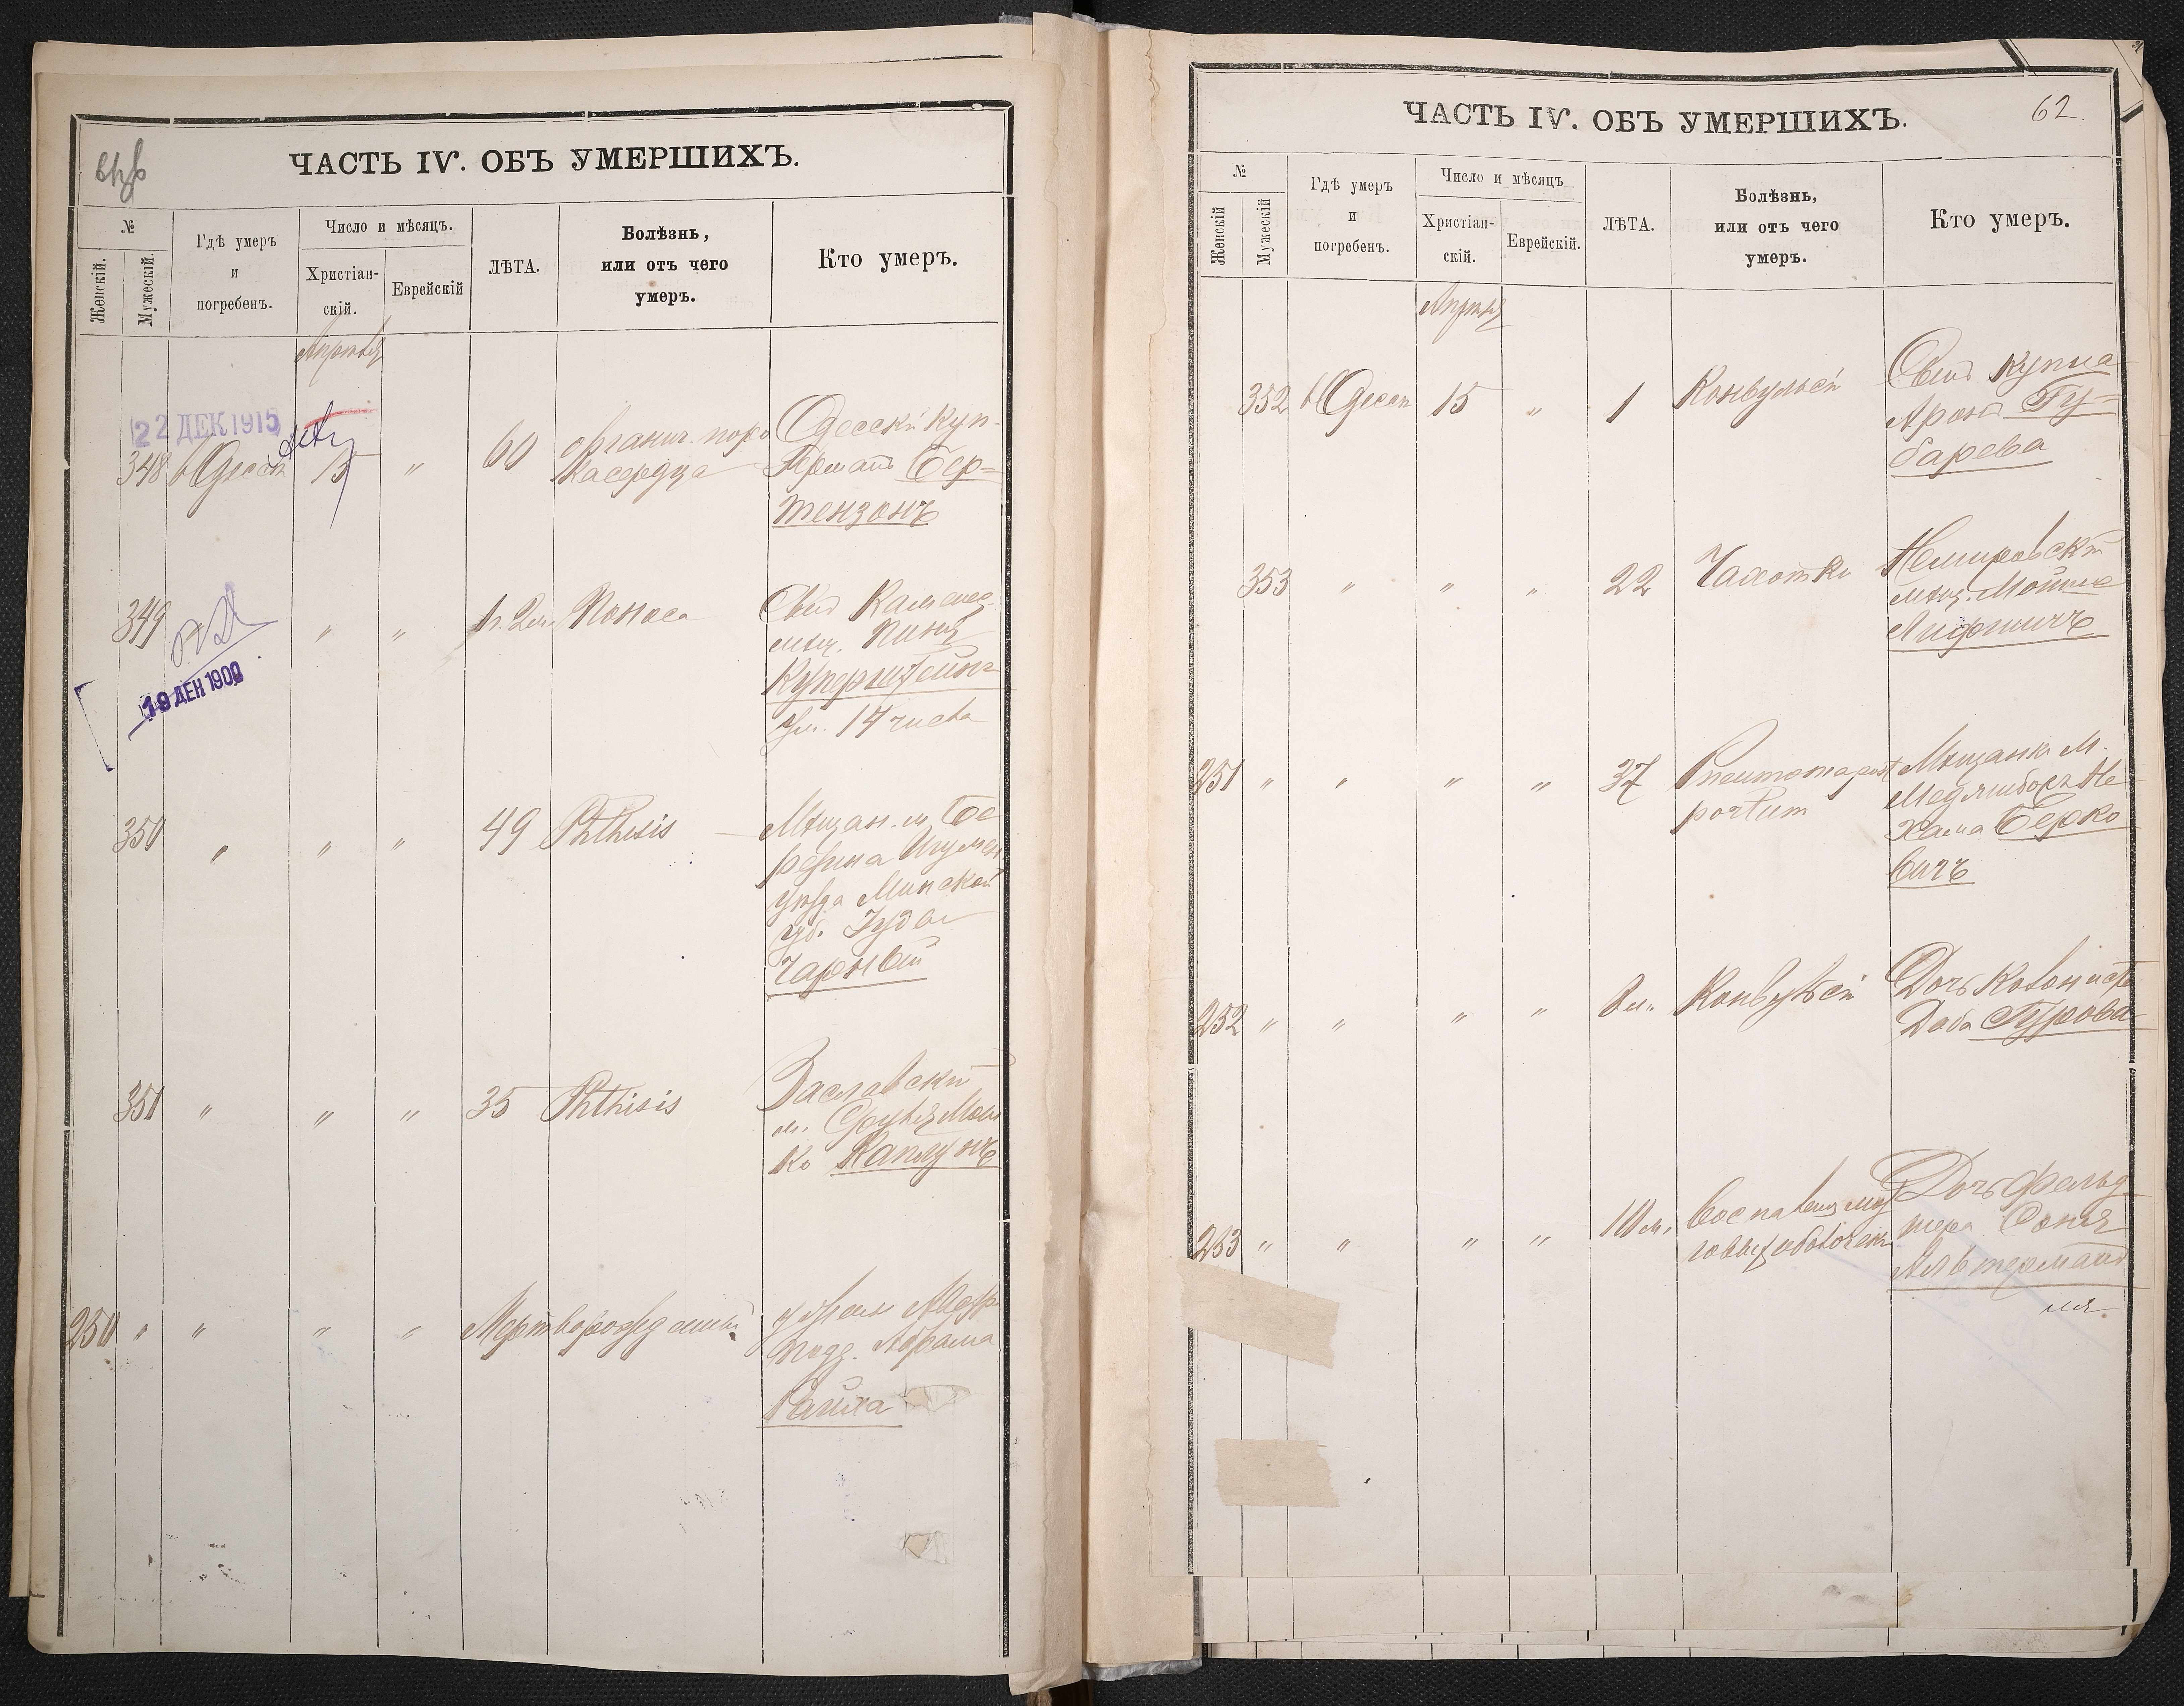 ЧАСТЬ IV. ОБЪ УМЕРШИХЪ.
№
Женскій.
Мужескій.
Гдѣ умеръ
и
погребенъ.
Число и мѣсяцъ.
Христіан-
скій.
Еврейскій
ЛѢТА.
Болѣзнь,
или отъ чего
умеръ.
Кто умеръ.
Апрѣля
22 ДЕК 1915
348 в Одессѣ 15 " 60
Одесскій куп.
Германъ Бер=
тензонъ
349 " " Поноса
Сынъ Каменец.
мѣщ. Пиня
Куперштейнъ
ум. 14 числа
19 ДЕК 1900
350 " " " 49 Phthisis
Мѣщан. м. Бе
резина Игумен
уѣзда Минской
губ. Іуда
Чарный
351 " " " 35 Phthisis
Заславскій
м. Сруль Мош
ко Каплунъ
250 " " " " Мертворожденный
Подд. Абрама
Райха
ЧАСТЬ IV. ОБЪ УМЕРШИХЪ.
62.
№
Женскій
Мужескій
Гдѣ умеръ
и
погребенъ.
Число и мѣсяцъ
Христіан-
скій.
Еврейскій.
ЛѢТА.
Болѣзнь,
или отъ чего
умеръ.
Кто умеръ.
Апрѣля
352 в Одессѣ 15 " 1 Конвульсій
Сынъ купца
Аронъ Гу=
барева
353 " " " 22 Чахотки
Немировскій
мѣщ. Мойше
Лифшицъ
251 " " " " 37
partum
Мѣщанка м.
Меджибожъ Не
хама Берко
вичъ
252 " " " " 8 м. Конвульсій
Дочь колониста
Доба Гурова
253 " " " " 10 м. Воспаленія моз
говыхъ оболочекъ
Дочь фельд
шера Соня
Альтерманъ